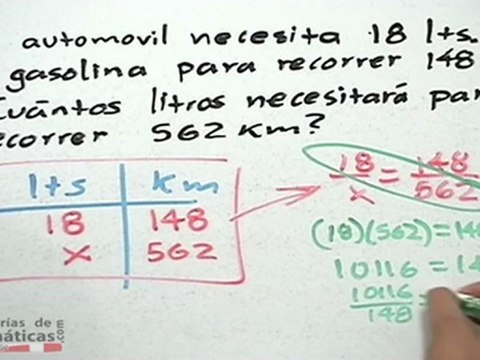 automovil necesita 18 lts.
gasolina para recorrer 148
Cuántos litros necesitará par
ecorrer 562 Km?
lts Km
18 148
x 562
18/x = 148/562
(18)(562)=148
10116 = 14
10116/148 =
rías de
máticas
.com